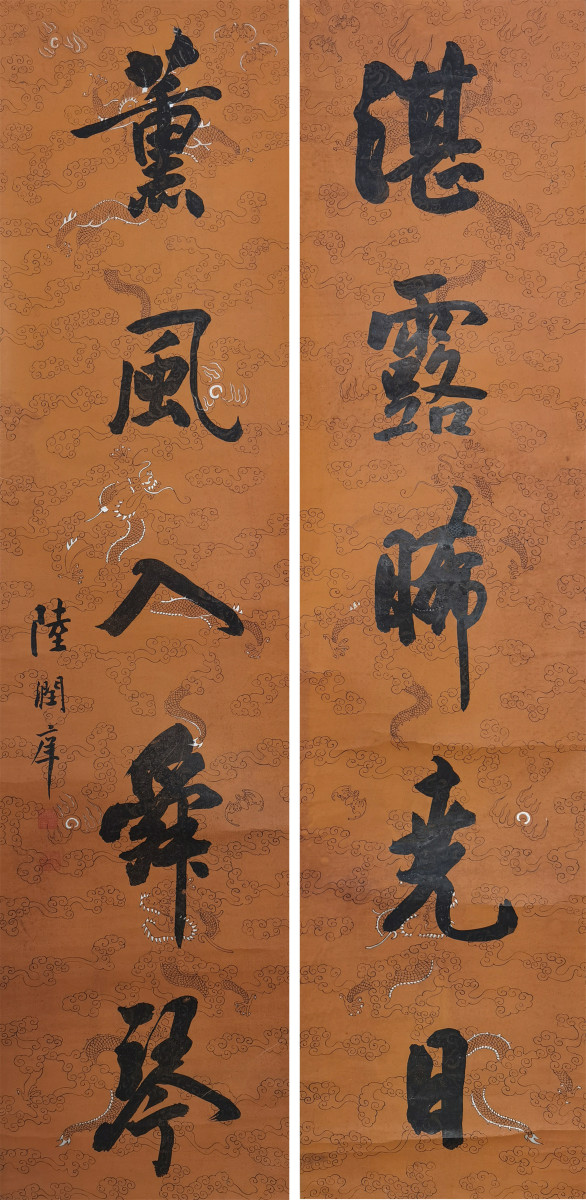 湛露晞堯日
薰風入舜琴
陸潤庠